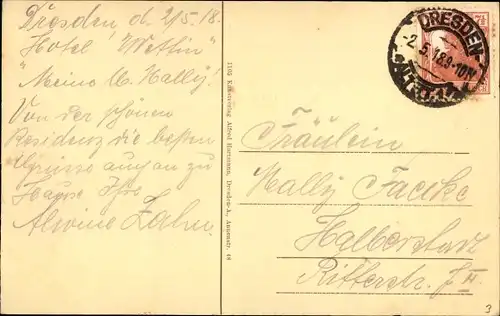 Dresden d. 2/5.18.
Hotel "Wettin"
"Meine l. Wally!
Von der schönen
Residenz die besten
Grüsse auch an zu
Hause Ihre
Alwine Zahn.
1105 Kunstverlag Alfred Hartmann, Dresden-A., Annenstr. 48
DRESDEN-
-2.5.18.9-10V
ALTST.
7½
Fräulein
Wally
Halberstadt
Ritterstr.
3